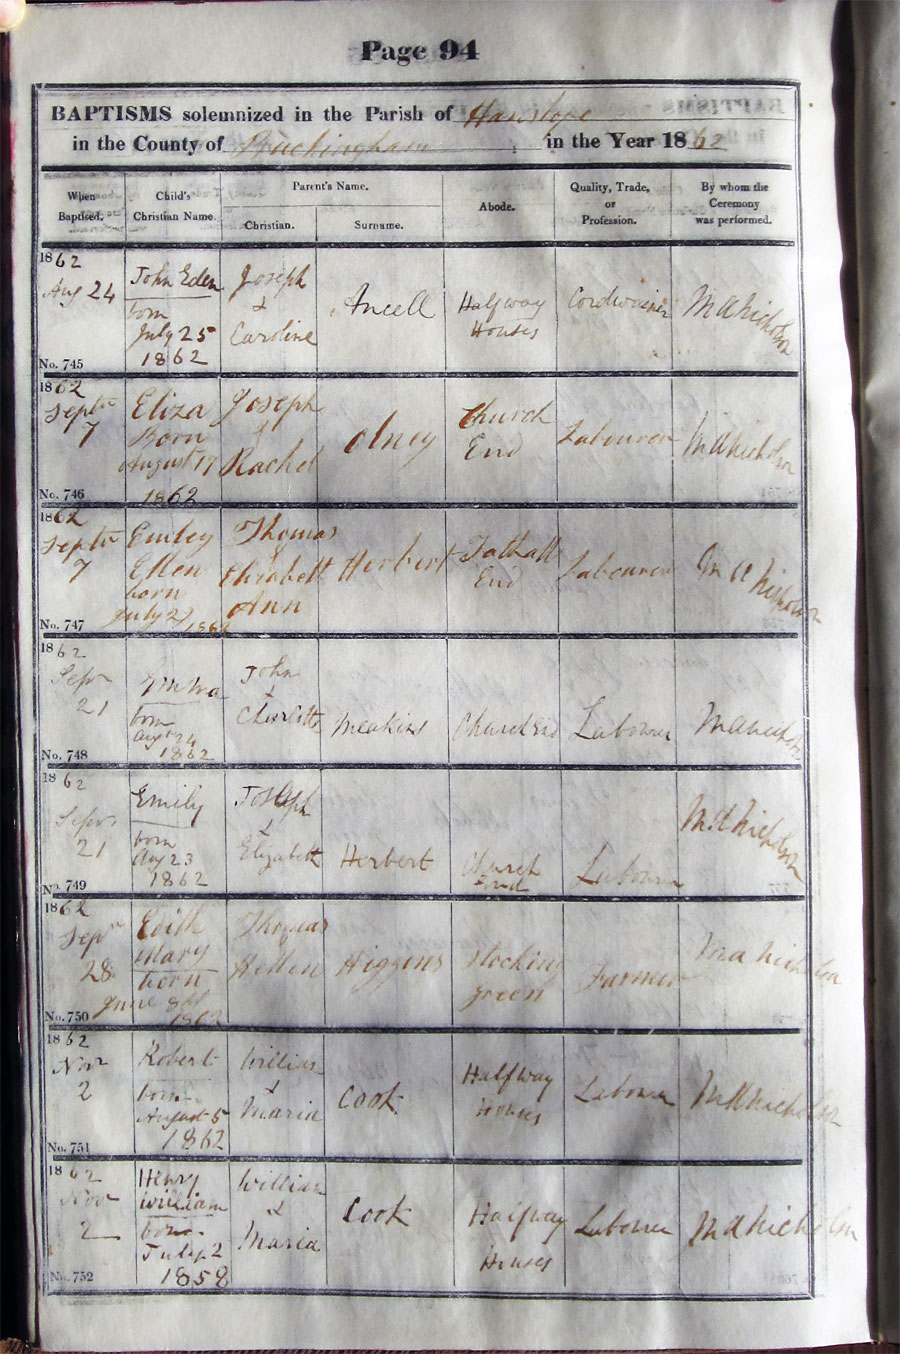 Page 94
BAPTISMS solemnized in the Parish of Hanslope
in the County of Buckingham in the Year 1862
When Baptised.
Child's Christian Name.
Parent's Name.
Christian.
Surname.
Abode.
Quality, Trade, or Profession.
By whom the Ceremony was performed.
1862
Aug 24
No. 745
John Eden
born
July 25
1862
Joseph
&
Caroline
Ancell
Halfway
Houses
Cordwainer
M A Nicholson
1862
Septr
7
No. 746
Eliza
Born
August 17
1862
Joseph
&
Rachel
Olney
Church
End
Labourer
M A Nicholson
1862
Septr
7
No. 747
Emley
Ellen
born
July 27 1862
Thomas
&
Elizabeth
Ann
Herbert
Tathall
End
Labourer
M A Nicholson
1862
Sepr
21
No. 748
Emma
born
Augst 24
1862
John
&
Charlotte
Meakins
Church End
Labourer
M A Nicholson
1862
Sepr
21
No. 749
Emily
born
Aug 23
1862
Joseph
&
Elizabeth
Herbert
Church
End
Labourer
M A Nicholson
1862
Sepr
28
No. 750
Edith
Mary
born
June
1862
Thomas
Higgens
Stocking
green
Farmer
M A Nicholson
1862
Novr
2
No. 751
Robert
born
August 5
1862
William
&
Maria
Cook
Halfway
Houses
Labourer
M A Nicholson
1862
Novr
2
No. 752
Henry
William
born
July 2
1858
William
&
Maria
Cook
Halfway
Houses
Labourer
M A Nicholson